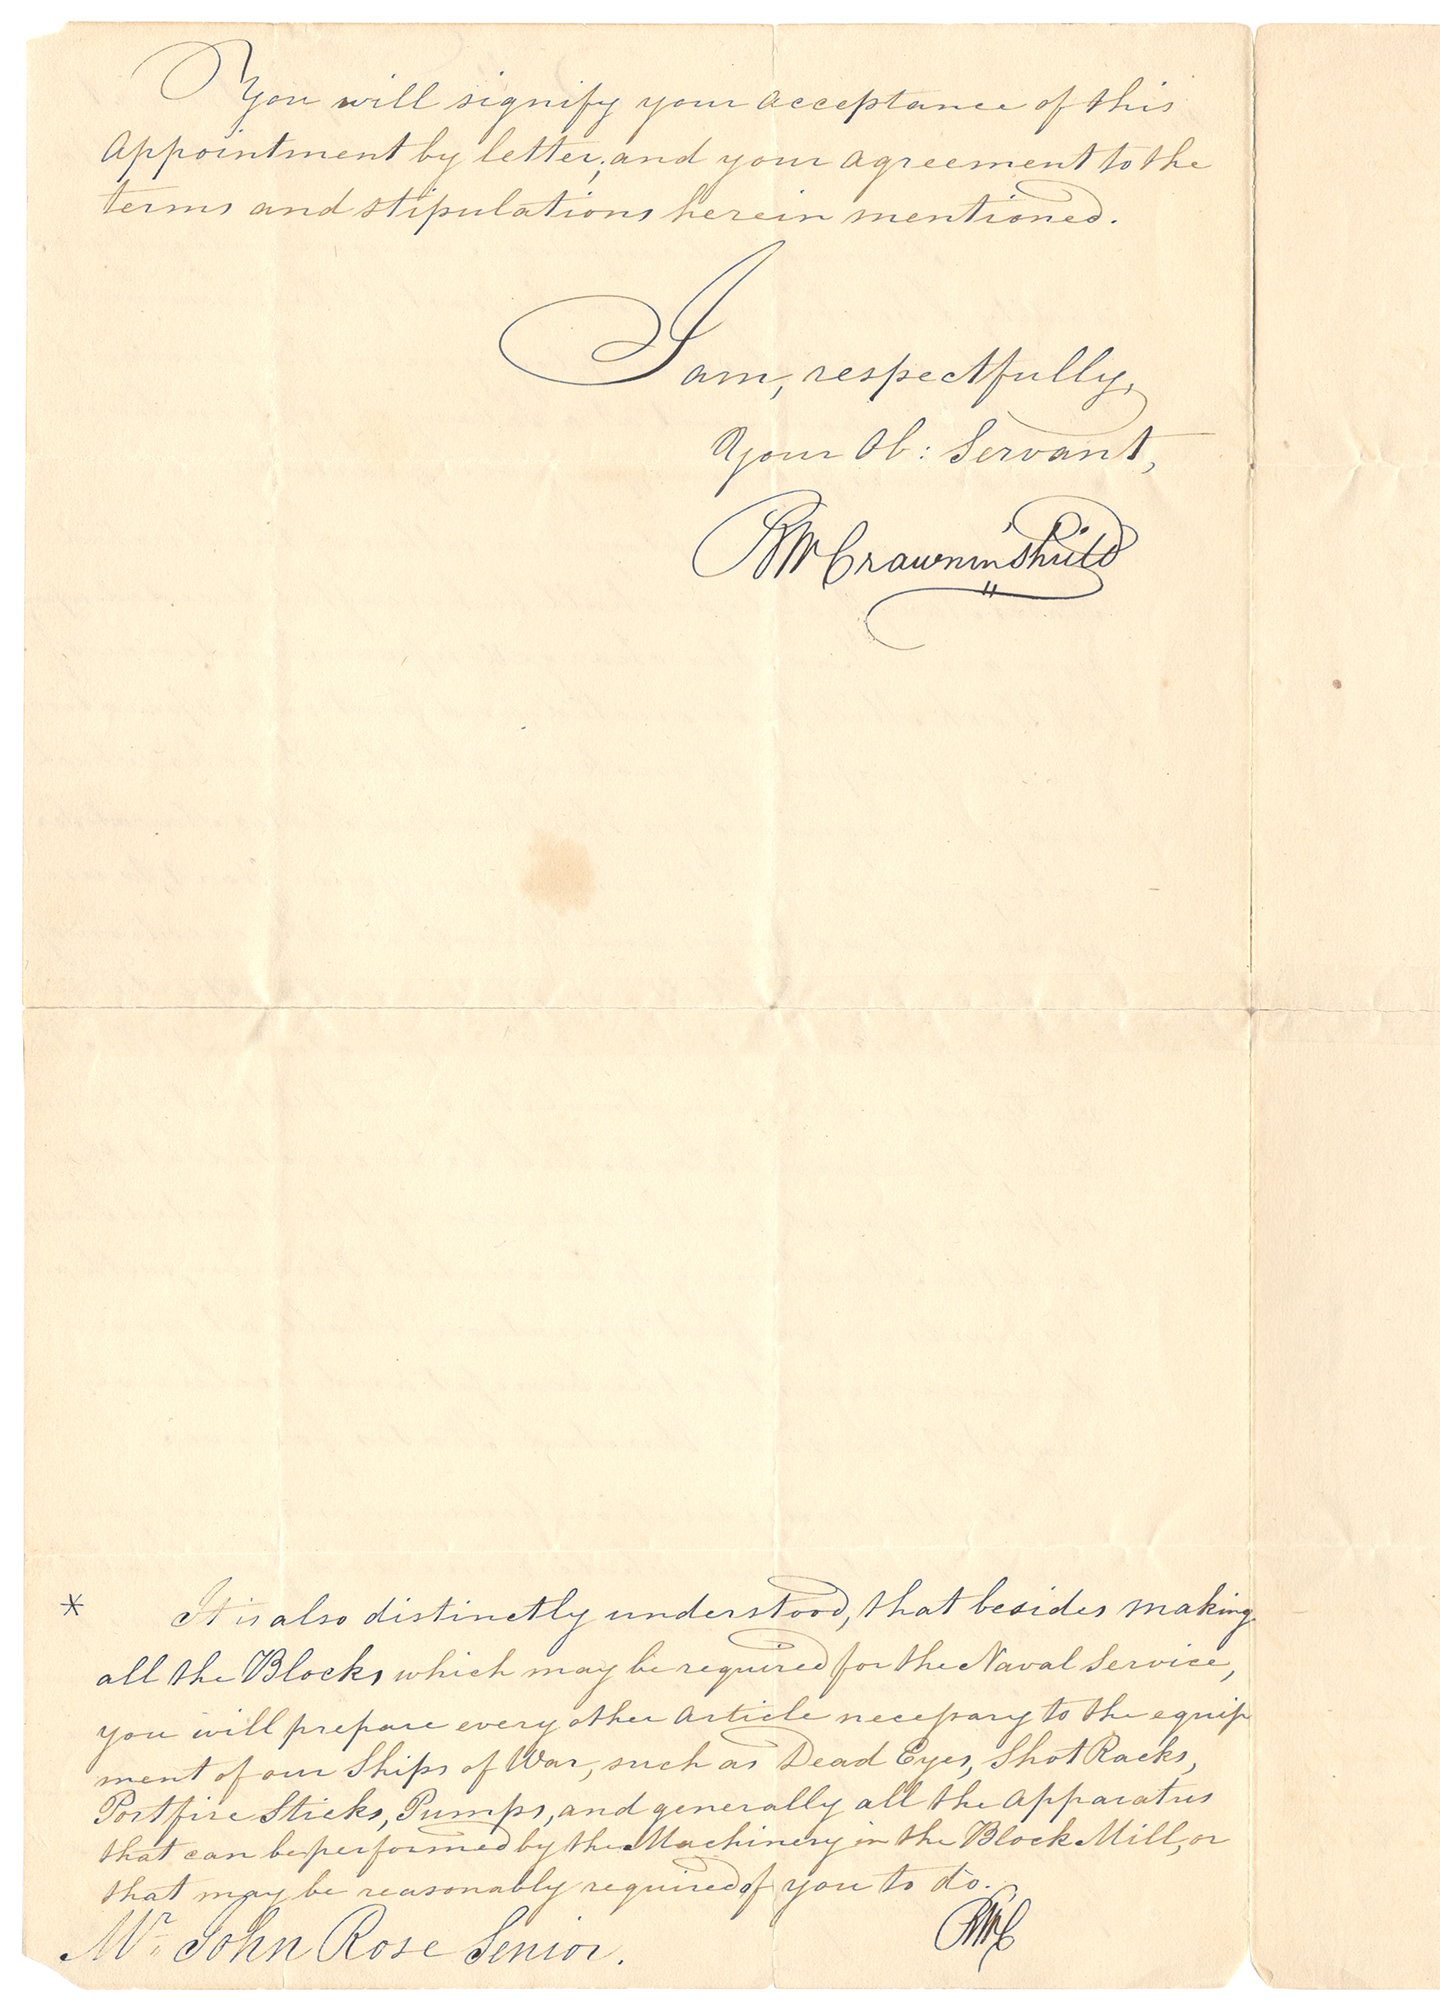 You will signify your acceptance of this
Appointment by letter, and your agreement to the
terms and stipulations herein mentioned.
I am, respectfully,
Your Ob: Servant,
BW Crowninshield
* It is also distinctly understood, that besides making
all the Blocks, which may be required for the Naval Service,
you will prepare every other Article necessary to the equip
ment of our Ships of War, such as Dead Eyes, Shot Racks,
Portfire Sticks, Pumps, and generally all the Apparatus
that can be performed by the Machinery in the Block Mill, or
that may be reasonably required of you to do.
BWC
Mr. John Rose Senior.